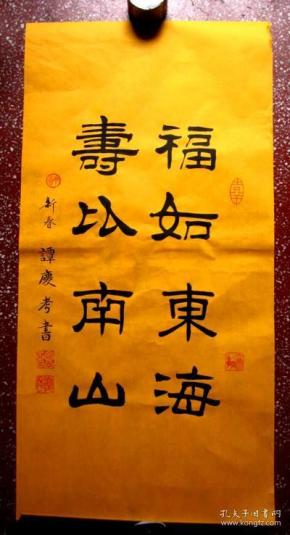 福如東海
壽比南山
新春
譚慶考書
孔夫子旧书网
www.kongfz.com